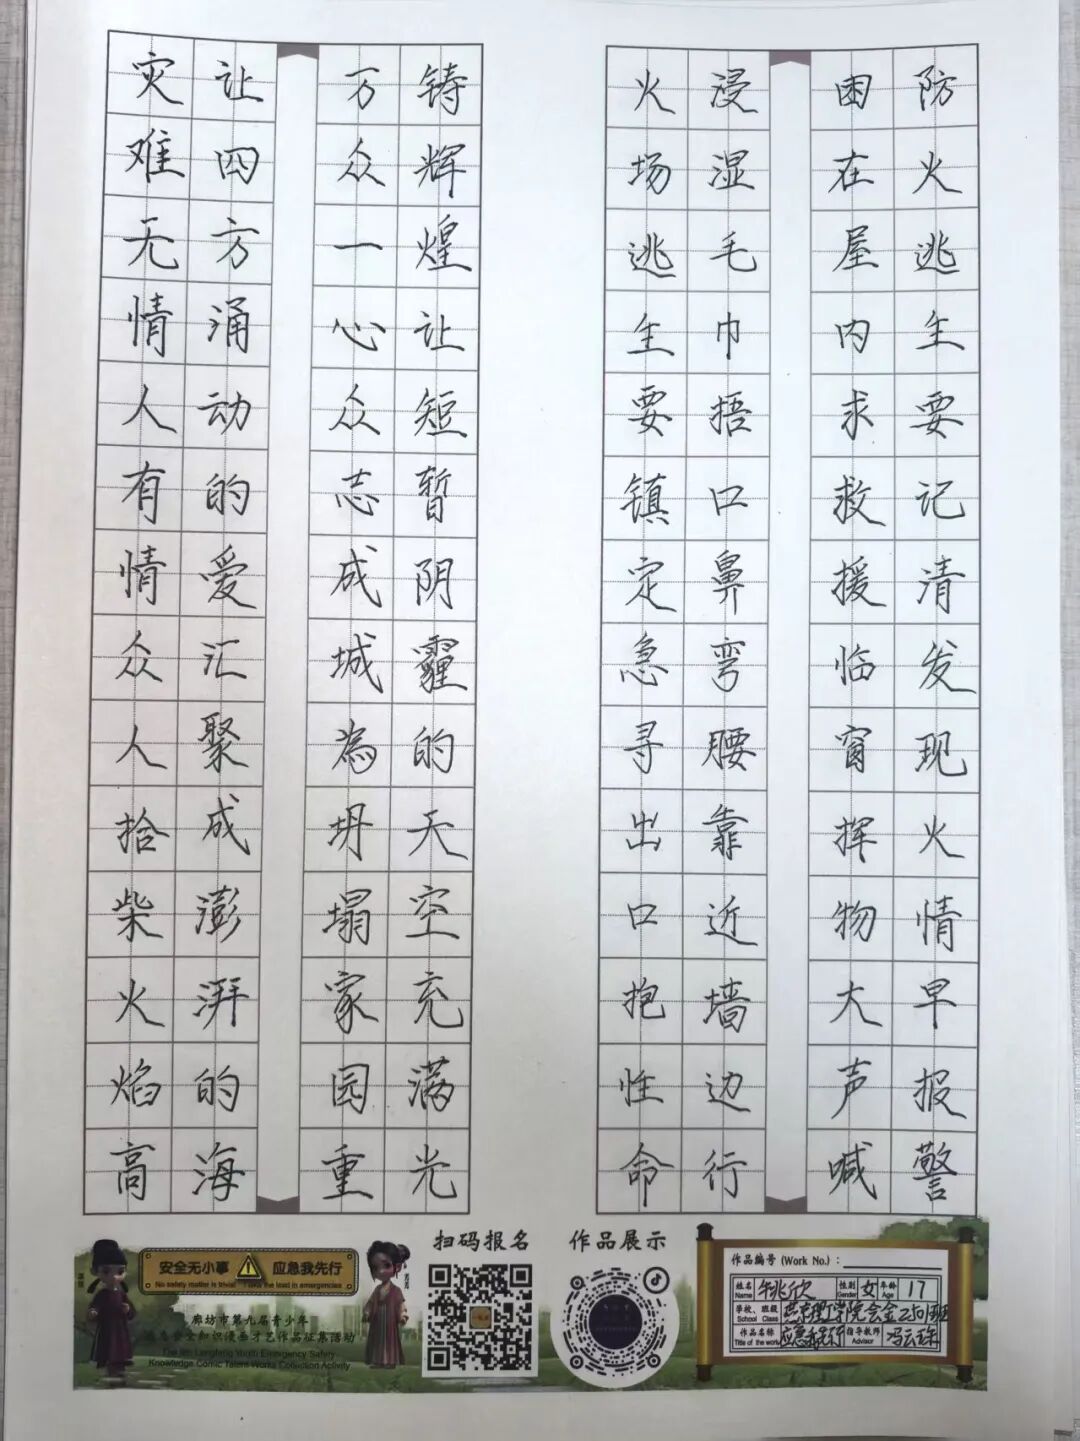 防火逃生要记清发现火情早报警
困在屋内求救援临窗挥物大声喊
浸湿毛巾捂口鼻弯腰靠近墙边行
火场逃生要镇定急寻出口抱性命
铸辉煌让短暂阴霾的天空充满光
万众一心众志成城為坍塌家园重
让四方涌动的爱汇聚成澎湃的海
灾难无情人有情众人拾柴火焰高
安全无小事 应急我先行
No safety matter is trivial I take the lead in emergencies
廊坊市第九届青少年
应急安全知识漫画才艺作品征集活动
The 9th Langfang Youth Emergency Safety
Knowledge Comic Talent Works Collection Activity
扫码报名
作品展示
作品编号 (Work No.) :
姓名 Name 姚欣 性别 Gender 女 年龄 Age 17
学校、班级 School Class
作品名称 Title of the work 指导教师 Advisor